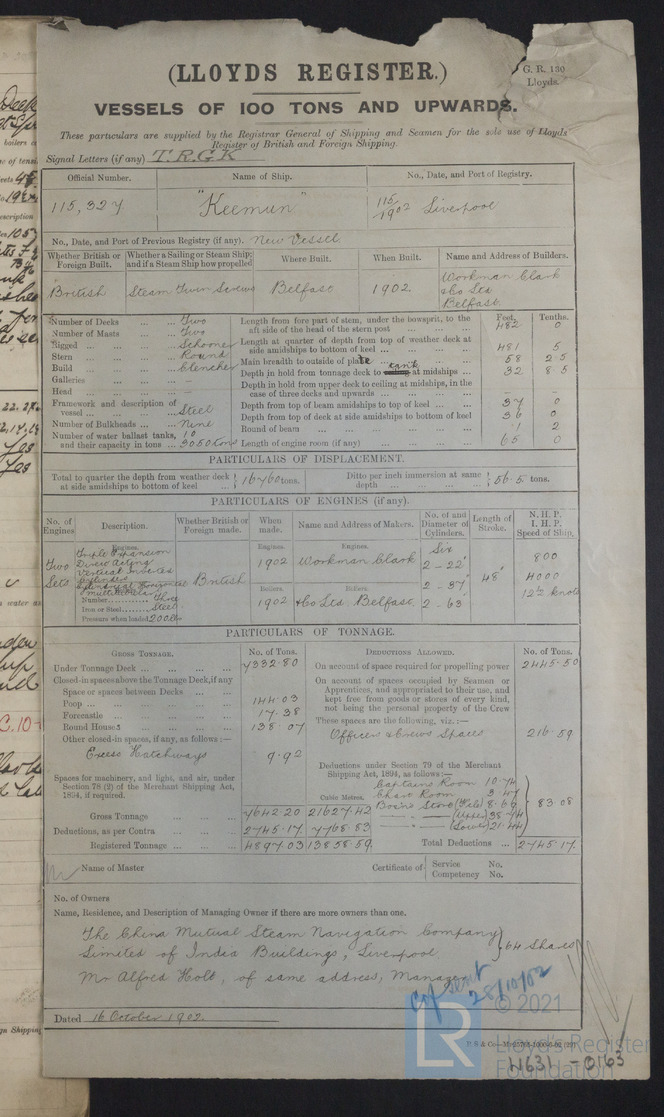 (LLOYDS REGISTER.)
G. R. 130
Lloyds.
VESSELS OF 100 TONS AND UPWARDS.
These particulars are supplied by the Registrar General of Shipping and Seamen for the sole use of Lloyds'
Register of British and Foreign Shipping.
Signal Letters (if any) T.R.G.K
Official Number. Name of Ship. No., Date, and Port of Registry.
115,327 "Keemun" 115/1902 Liverpool
No., Date, and Port of Previous Registry (if any). New Vessel
Whether British or Foreign Built. Whether a Sailing or Steam Ship; and if a Steam Ship how propelled Where Built. When Built. Name and Address of Builders.
British Steam Twin Screws Belfast 1902. Workman Clark & Co Ltd Belfast.
Number of Decks ... ... Two
Number of Masts ... ... Two
Rigged ... ... Schooner
Stern ... ... Round
Build ... ... Clencher
Galleries ... ... –
Head ... ... –
Framework and description of vessel ... Steel
Number of Bulkheads ... Nine
Number of water ballast tanks, 10
and their capacity in tons ... 3050 tons
Feet. Tenths.
Length from fore part of stem, under the bowsprit, to the aft side of the head of the stern post ... 482 0
Length at quarter of depth from top of weather deck at side amidships to bottom of keel ... 481 5
Main breadth to outside of plate ... 58 25
Depth in hold from tonnage deck to tank at midships ... 32 85
Depth in hold from upper deck to ceiling at midships, in the case of three decks and upwards ... – –
Depth from top of beam amidships to top of keel ... 37 0
Depth from top of deck at side amidships to bottom of keel 36 0
Round of beam ... 1 2
Length of engine room (if any) ... 65 0
PARTICULARS OF DISPLACEMENT.
Total to quarter the depth from weather deck at side amidships to bottom of keel } 16760 tons.
Ditto per inch immersion at same depth } 56.5 tons.
PARTICULARS OF ENGINES (if any).
No. of Engines. Description. Whether British or Foreign made. When made. Name and Address of Makers. No. of and Diameter of Cylinders. Length of Stroke. N. H. P. I. H. P. Speed of Ship.
Two Sets
Engines.
Triple Expansion
Direct Acting
Vertical Inverted
Cylinders
Cylindrical Horizontal
Multitubular
Number Three
Iron or Steel Steel
Pressure when loaded 200 lbs
British
Engines. 1902
Boilers. 1902
Engines. Workman Clark
Boilers. & Co Ltd, Belfast.
Six
2 – 22"
2 – 37"
2 – 63"
48"
800
4000
12½ knots
PARTICULARS OF TONNAGE.
GROSS TONNAGE. No. of Tons.
Under Tonnage Deck ... 7332.80
Closed-in spaces above the Tonnage Deck, if any
Space or spaces between Decks ...
Poop ... 144.03
Forecastle ... 17.38
Round Houses ... 138.07
Other closed-in spaces, if any, as follows:—
Excess Hatchways 9.92
Spaces for machinery, and light, and air, under
Section 78 (2) of the Merchant Shipping Act,
1894, if required.
Cubic Metres.
Gross Tonnage 7642.20 21627.42
Deductions, as per Contra 2745.17 7768.83
Registered Tonnage 4897.03 13858.59
DEDUCTIONS ALLOWED. No. of Tons.
On account of space required for propelling power 2445.50
On account of spaces occupied by Seamen or
Apprentices, and appropriated to their use, and
kept free from goods or stores of every kind,
not being the personal property of the Crew
These spaces are the following, viz.:—
Officers & Crews Spaces 216.59
Deductions under Section 79 of the Merchant
Shipping Act, 1894, as follows:—
Captains Room 10.74
Chart Room 3.47
Bosns Store 8.69
(Upper) 38.74
(Lower) 21.44
83.08
Total Deductions ... 2745.17
Name of Master
Certificate of { Service No.
Competency No.
No. of Owners
Name, Residence, and Description of Managing Owner if there are more owners than one.
The China Mutual Steam Navigation Company
Limited of India Buildings, Liverpool } 64 Shares
Mr Alfred Holt, of same address, Manager
Cop sent
28/10/02
Dated 16 October 1902.
© 2021
LR
Lloyd's Register
Foundation
W631 - 0163